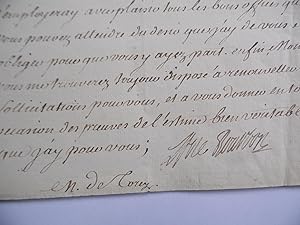 employeray avec plaisir tous les bons offices que
vous pouvez attendre du desir que j'ay de vous
obliger pour que vous y ayez part. enfin Mon
vous me trouverez toujours disposé a renouveller
sollicitations pour vous, et a vous donner en to
occasion des preuves de l'estime bien veritable
que j'ay pour vous;
M. de